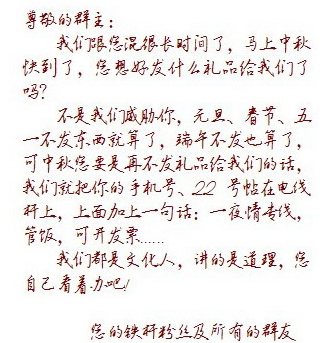 尊敬的群主：
我们跟您混很长时间了，马上中秋
快到了，您想好发什么礼品给我们了
吗？
不是我们威胁你，元旦、春节、五
一不发东西就算了，端午不发也算了，
可中秋您要是再不发礼品给我们的话，
我们就把你的手机号、22号帖在电线
杆上，上面加上一句话：一夜情专线，
管饭，可开发票……
我们都是文化人，讲的是道理，您
自己看着办吧！
您的铁杆粉丝及所有的群友